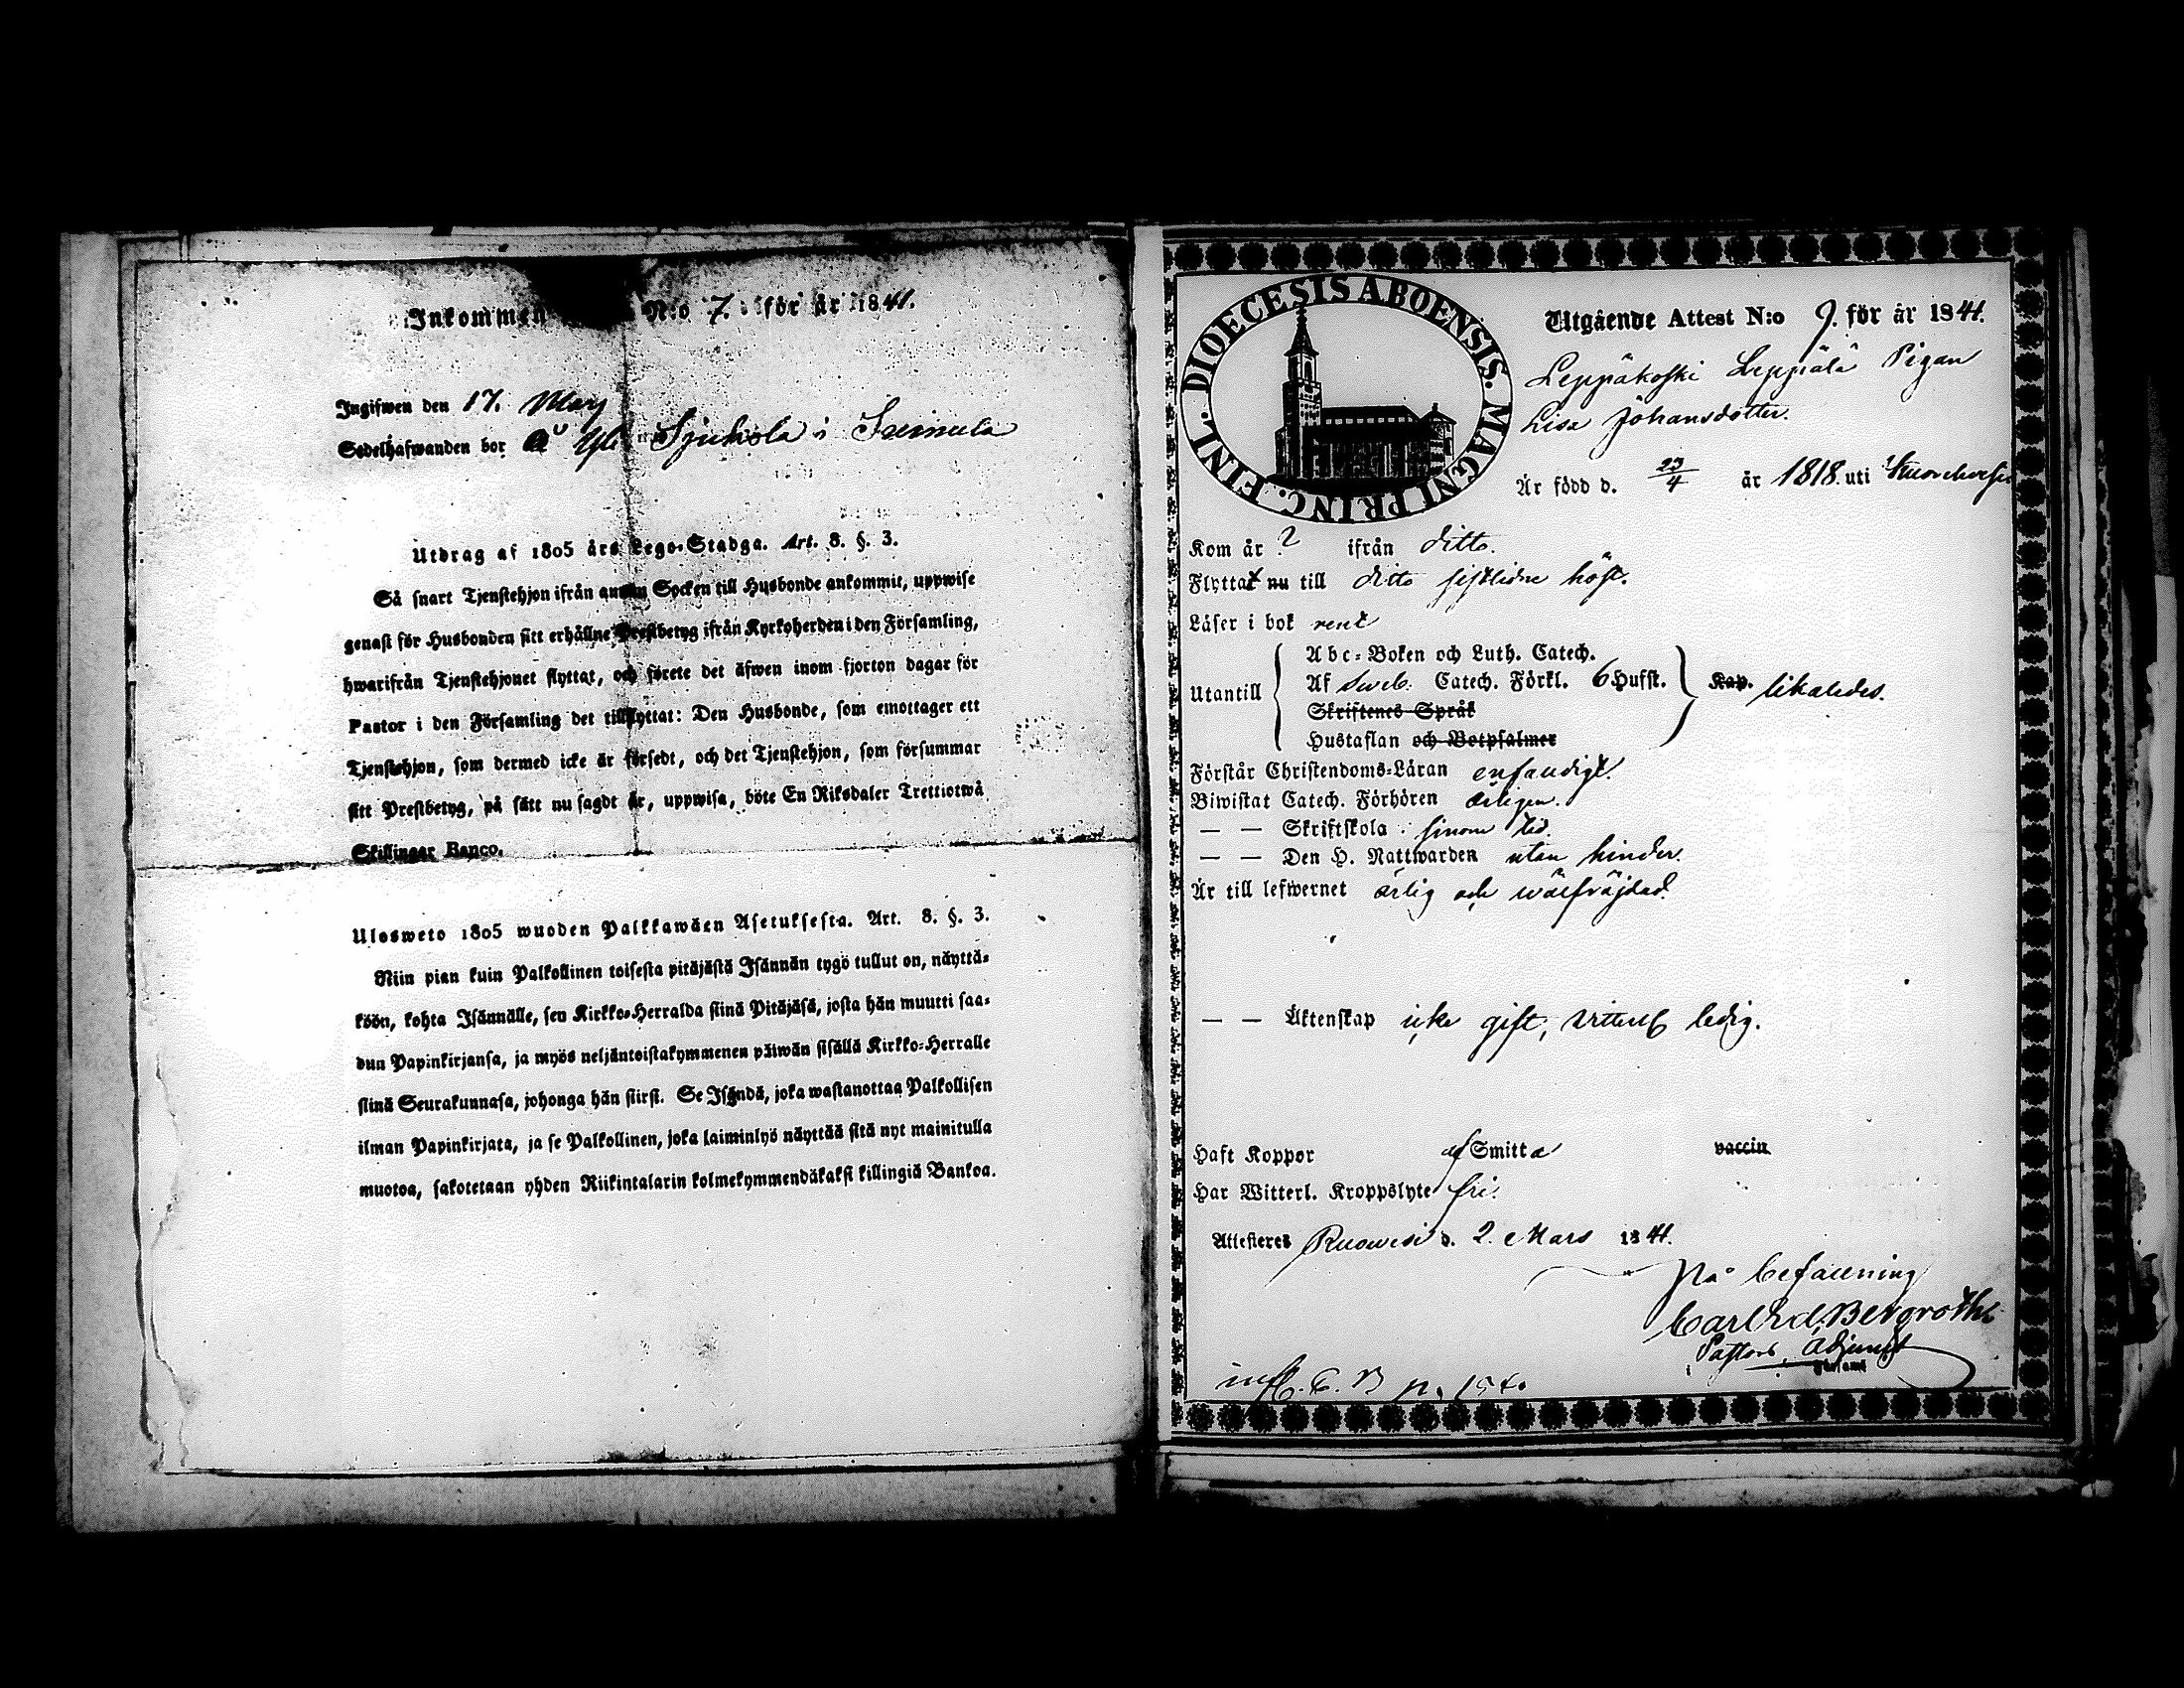 Inkommen N:o 7. för år 1841.
Ingifwen den 17. Mars
Sedelhafwanden bor å Yli Sjukola i
Utdrag af 1805 års Lego-Stadga. Art. 8. §. 3.
Så snart Tjenstehjon ifrån annan Socken till Husbonde ankommit, uppwise
genast för Husbonden sitt erhållne Prestbetyg ifrån Kyrkoherden i den Församling,
hwarifrån Tjenstehjonet flyttat, och förete det äfwen inom fjorton dagar för
Pastor i den Församling det tillflyttat: Den Husbonde, som emottager ett
Tjenstehjon, som dermed icke är försedt, och det Tjenstehjon, som försummar
sitt Prestbetyg, på sätt nu sagdt är, uppwisa, böte En Riksdaler Trettiotwå
Skillingar Banco.
Ulosweto 1805 wuoden Palkkawäen Asetuksesta. Art. 8. §. 3.
Niin pian kuin Palkollinen toisesta pitäjästä Isännän tygö tullut on, näyttä-
köön, kohta Isännälle, sen Kirkko-Herralda siinä Pitäjäsä, josta hän muutti saa-
dun Papinkirjansa, ja myös neljäntoistakymmenen päiwän sisällä Kirkko-Herralle
siinä Seurakunnasa, johonga hän siirsi. Se Isändä, joka wastanottaa Palkollisen
ilman Papinkirjata, ja se Palkollinen, joka laiminlyö näyttää sitä nyt mainitulla
muotoa, sakotetaan yhden Riikintalarin kolmekymmendäkaksi killingiä Bankoa.
DIOECESIS ABOENSIS. MAGNI PRINC. FINL.
Utgående Attest N:o 9. för år 1841.
Leppäkoski Leppälä Pigan
Lisa Johansdotter.
Är född d. 23/4 år 1818. uti
Kom år ? ifrån ditto.
Flyttat nu till ditto sistlidne höst.
Läser i bok rent
Utantill
Abc-Boken och Luth. Catech.
Af Sweb. Catech. Förkl. 6 Hufst.
Skriftenes Språk
Hustaflan och Botpsalmer
Kap. likaledes.
Förstår Christendoms-Läran enfaldigt.
Biwistat Catech. Förhören årligen.
— — Skriftskola sinom tid.
— — Den H. Nattwarden utan hinder.
Är till lefwernet ärlig och wälfräjdad.
— — Äktenskap icke gift, witterl. ledig.
Haft Koppor af Smitta vaccin
Har Witterl. Kroppslyte fri.
Attesteres Ruowesi d. 2. Mars 1841.
På befallning
Carl Ed. Bergroth
Pastors Adjunct
p. 154.